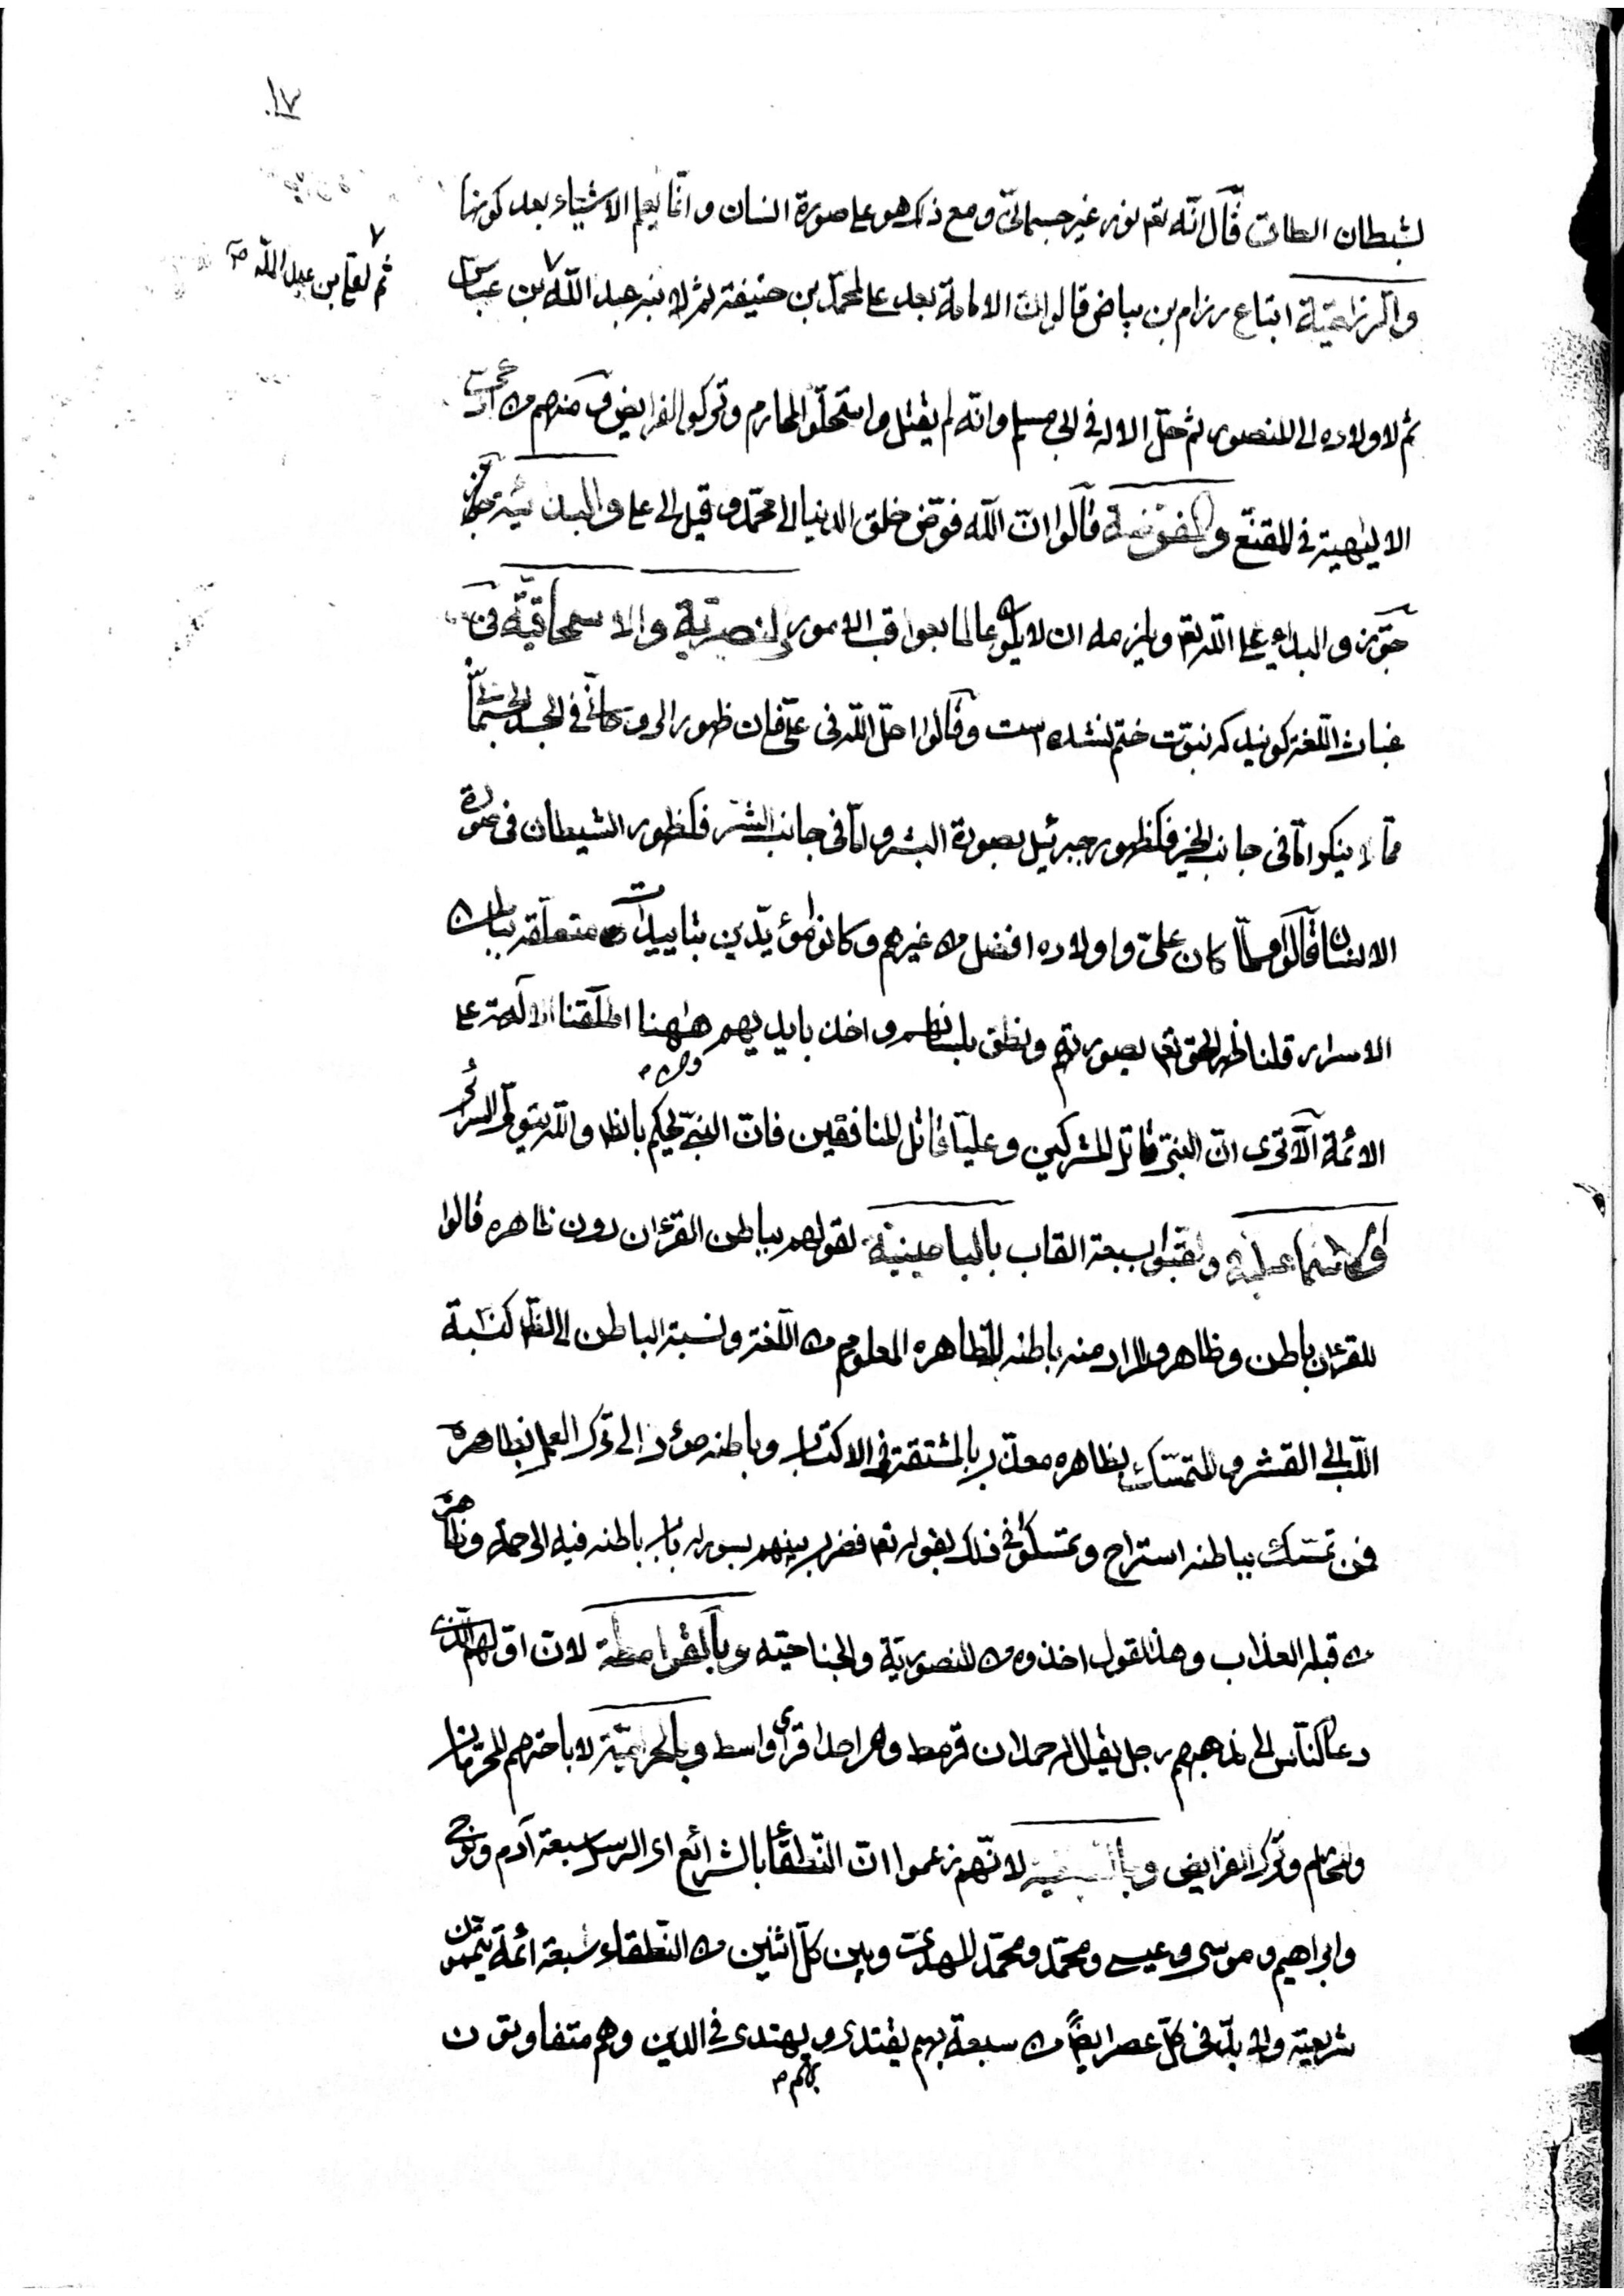 ١٧
لشيطان الطاق قال انّه تعم نور غير جسمانیّ ومع ذلك هو على صورة انسان وانّما يعلم الاشياء بعد كونها
والرزاميّة اتباع رزام بن بياض قالوا انّ الامامة بعد على لمحمّد بن حنيفة ثم لابنه عبد اللّه بن عباس
ثم لعلى بن عبد اللّه صح
ثم لاولاده الى المنصور ثم حلّ الاله فى ابى مسلم وانّه لم يقتل واستحلّوا المحارم وتركوا الفرايض ومنهم من ادعى
الالهية فى المقنّع والمفوّضة قالوا انّ اللّه فوّض خلق الدنيا الى محمّد وقيل الى على والبدائية
جوّزو البداء على اللّه تعم ويلزمه ان لا يكون عالما بعواقب الامور والنصيريّة والاسحاقيّة فى
غياث اللّغة كويند كه نبوّت ختم نشده است وقالوا حلّ اللّه فى علىّ فان ظهور الروحانى فى الجسد الجسمانى
ممّا لا ينكر امّا فى جانب الخير فكظهور جبرئيل بصورة البشر وامّا فى جانب الشّر فكظهور الشيطان فى صورة
الانسان قالوا ولمّا كان علىّ واولاده افضل من غيرهم وكانوا مؤيّدين بتاييدات متعلّقة بباطن
الاسرار قلنا ظهر الحق تعم بصورتهم ونطق بلسانهم واخذ بايديهم ومن هٰهنا اطلقنا الآلهة على
الائمة آلا ترى انّ النبىّ قاتل المشركين وعليّاً قاتل المنافقين فانّ النبىّ يحكم بالظا واللّه يتولّى السرائر
والاسماعيلية ولقّبوا بسبعة القاب بالباطنية لقولهم بباطن القرءان دون ظاهره قالوا
للقرءان باطن وظاهر والمراد منه باطنه لا ظاهره المعلوم من اللّغة ونسبة الباطن الى الظا كنسبة
اللّب الى القشر والمتمسّك بظاهره معذّب بالمشقة فى الاكتساب وباطنه مؤد الى ترك العمل بظاهره
فمن تمسّك بباطنه استراح وتمسّكوا فى ذلك بقوله تعم فضرب بينهم بسور له باب باطنه فيه الرحمة وظاهره
من قبله العذاب وهذا القول اخذوه من المنصوريّة والجناحيّة وبالقرامطة لانّ اوّلهم الّذى
دعا النّاس الى مذهبهم رجل يقال له حمدان قرمط وهى احدى قرى واسط وبالحرميّة لاباحتهم المحرمات
والمحارم وترك الفرايض وبالسبعية لانّهم زعموا انّ النّطقاء بالشرائع اى الرسل سبعة آدم ونوح
وابراهيم وموسى وعيسى ومحمّد ومحمّد المهدى وبين كلّ اثنين من النّطقاء سبعة ائمة يتمّمون
شريعته ولا بدّ فى كلّ عصر ايضاً من سبعة بهم يقتدى وبهم يهتدى فى الدين وهم متفاوتون